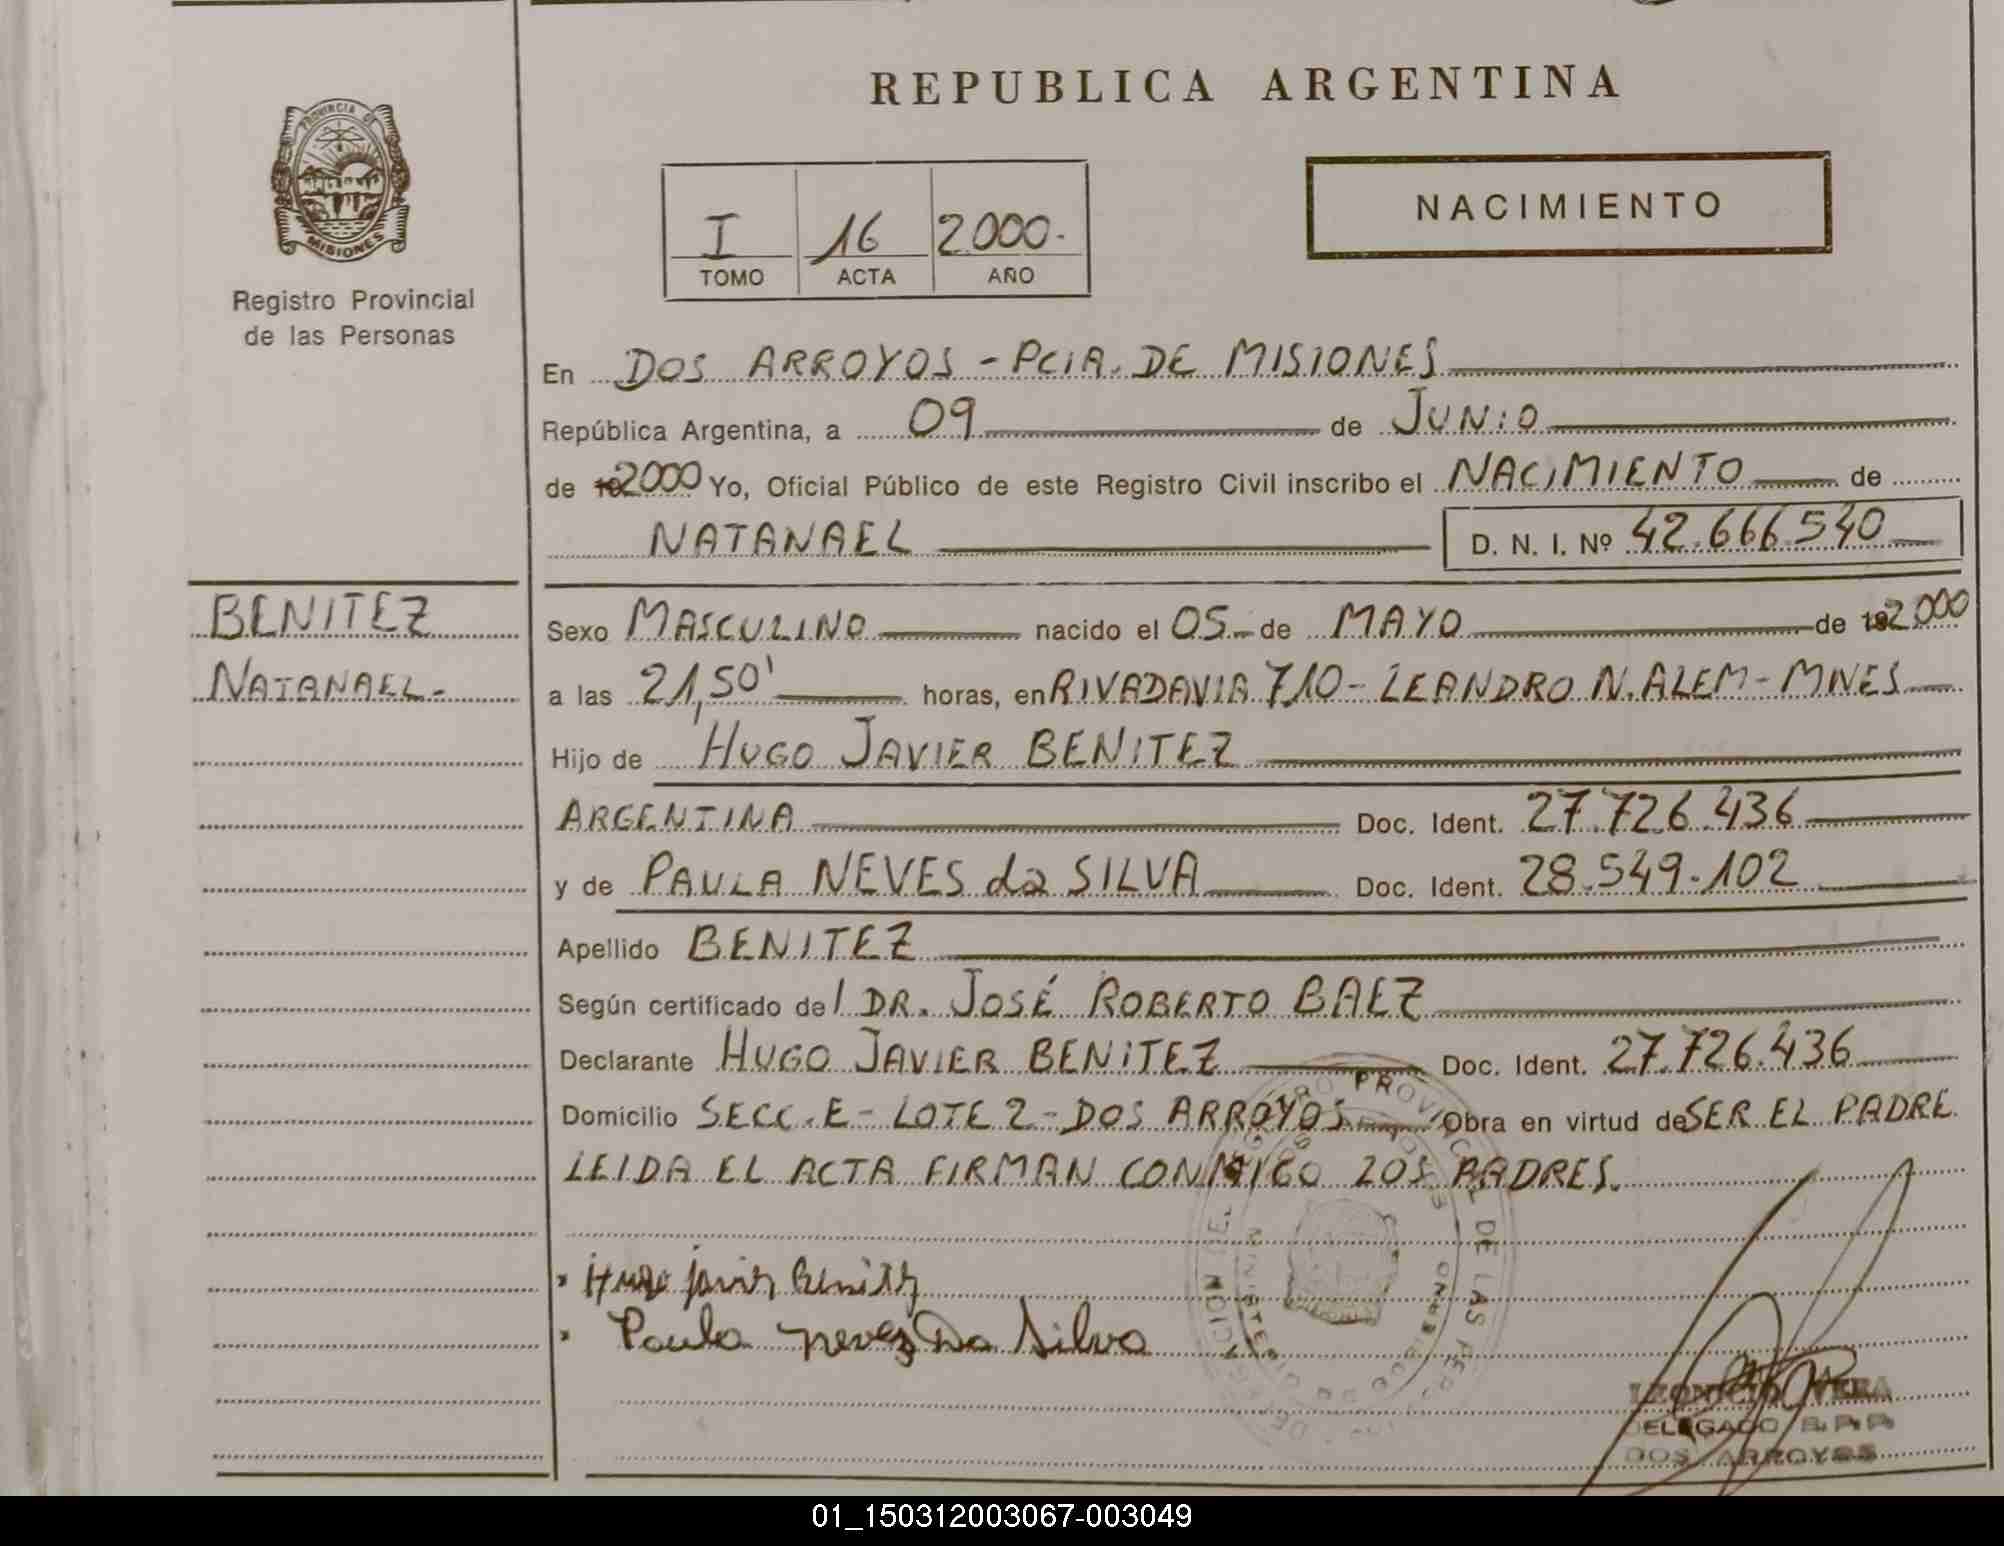 REPUBLICA ARGENTINA
PROVINCIA DE
MISIONES
Registro Provincial
de las Personas
I 16 2.000.-
TOMO ACTA AÑO
NACIMIENTO
En DOS ARROYOS - PCIA. DE MISIONES
República Argentina, a 09 de JUNIO
de 192000 Yo, Oficial Público de este Registro Civil inscribo el NACIMIENTO de
NATANAEL D. N. I. Nº 42.666.540
BENITEZ
NATANAEL.-
Sexo MASCULINO nacido el 05.- de MAYO de 192.000
a las 21,50' horas, en RIVADAVIA 710 - LEANDRO N. ALEM - MNES
Hijo de HUGO JAVIER BENITEZ
ARGENTINA Doc. Ident. 27.726.436
y de PAULA NEVES da SILVA Doc. Ident. 28.549.102
Apellido BENITEZ
Según certificado del DR. JOSÉ ROBERTO BAEZ
Declarante HUGO JAVIER BENITEZ Doc. Ident. 27.726.436
Domicilio SECC. E - LOTE 2 - DOS ARROYOS Obra en virtud de SER EL PADRE
LEIDA EL ACTA FIRMAN CONMIGO LOS PADRES.
Hugo Javier Benitez
Paula Nevez Da Silva
LEONICIO VERA
DELEGADO R.P.P.
DOS ARROYOS
01_150312003067-003049